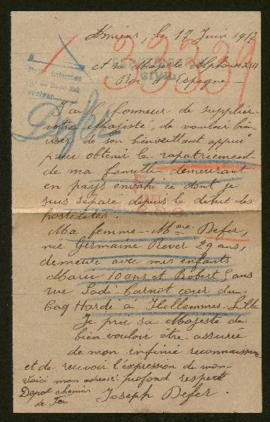 Amiens, le 12 Juin 191
33339
A Sa Majesté Alphonse XIII
Roi Espagne
J'ai l'honneur de supplier
votre Majesté, de vouloir bien
user de son bienveillant appui
pour obtenir le rapatriement
de ma famille demeurant
en pays envahi et dont je
suis séparé depuis le début des
hostilités.
Ma femme Mme Defer,
née Germaine Revel 29 ans,
demeure avec mes enfants
Marie 10 ans et Robert ans
rue Sadi-Carnot cour du
Coq Hardi à Hellemmes-Lille
Je prie sa Majesté de
bien vouloir être assurée
de mon infinie reconnaissance
et de recevoir l'expression de mon
profond respect
Voici mon adresse
Joseph Defer
Depot chemin
de Fer
Defer